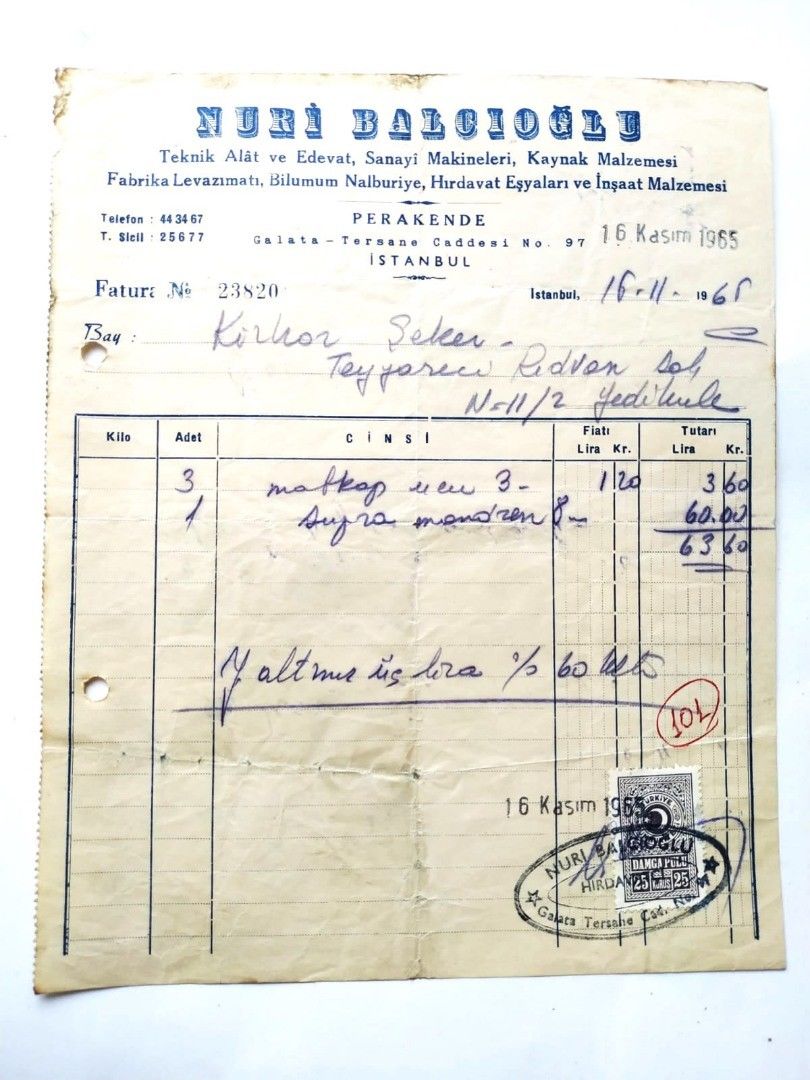 NURİ BALCIOĞLU
Teknik Alât ve Edevat, Sanayî Makineleri, Kaynak Malzemesi
Fabrika Levazımatı, Bilumum Nalburiye, Hırdavat Eşyaları ve İnşaat Malzemesi
Telefon : 44 34 67
T. Sicil : 25677
PERAKENDE
Galata - Tersane Caddesi No. 97
İSTANBUL
16 Kasım 1965
Fatura № 23820
İstanbul, 16-11- 1965
Bay : Kirkor Şeker -
Tayyareci Rıdvan Sok
N-11/2 Yedikule
Kilo Adet CİNSİ Fiatı Tutarı
Lira Kr. Lira Kr.
3 matkap ucu 3- 1 20 3 60
1 supra mandren 8- 60.00
63 60
Y altmış üç lira % 60
101
16 Kasım 1965
TÜRKİYE
DAMGA PULU
25 KURUŞ 25
NURİ BALCIOĞLU
HIRDAV
Galata Tersane Cad. No.